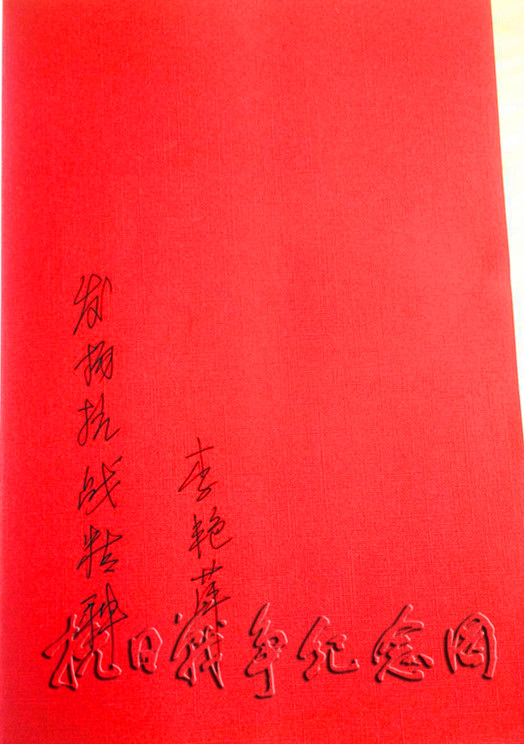 发扬抗战精神
李艳萍
抗日战争纪念网